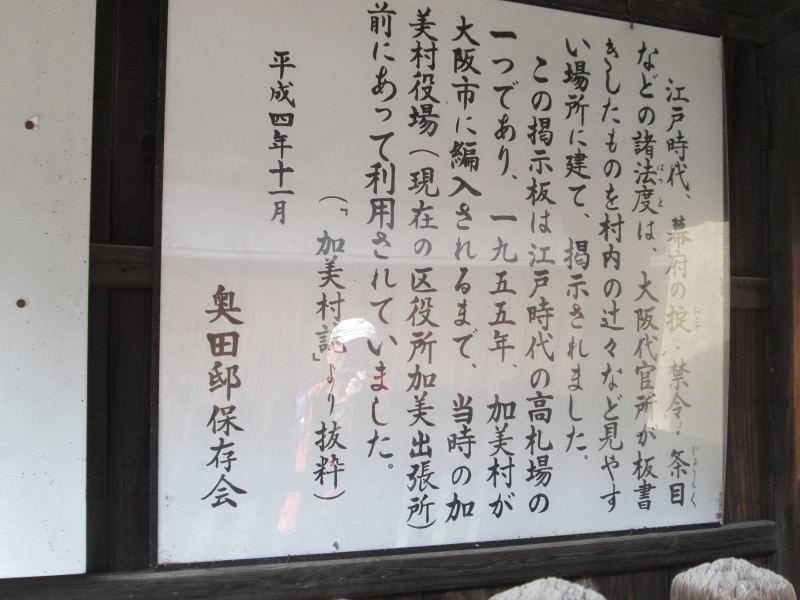 江戸時代、幕府の掟・禁令・条目
などの諸法度は、大阪代官所が板書
きしたものを村内の辻々など見やす
い場所に建て、掲示されました。
この掲示板は江戸時代の高札場の
一つであり、一九五五年、加美村が
大阪市に編入されるまで、当時の加
美村役場(現在の区役所加美出張所)
前にあって利用されていました。
(「加美村誌」より抜粋)
平成四年十一月
奥田邸保存会